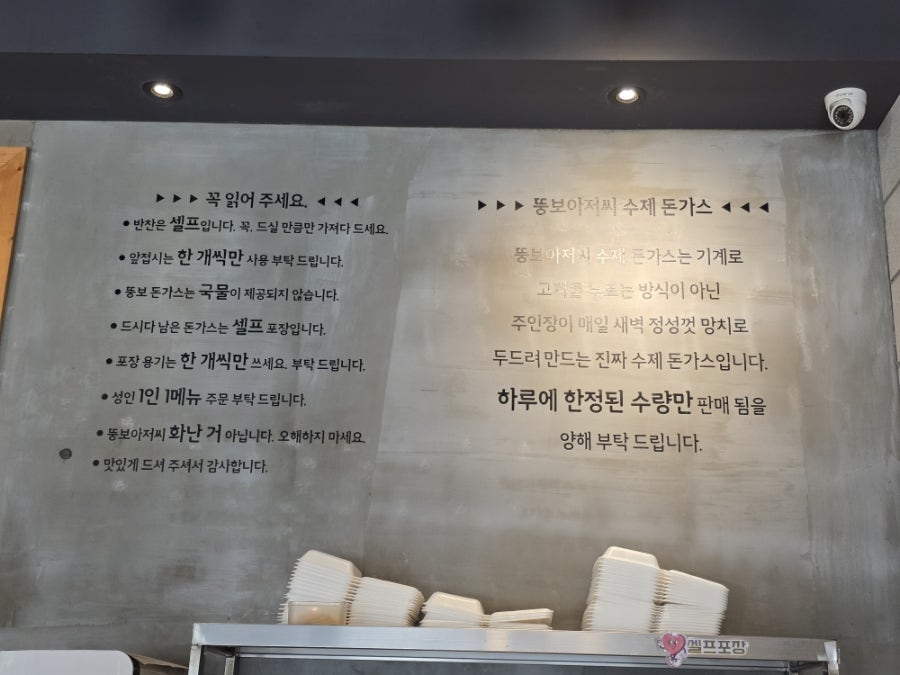 ▶ ▶ ▶ 꼭 읽어 주세요. ◀ ◀ ◀
• 반찬은 셀프입니다. 꼭, 드실 만큼만 가져다 드세요.
• 앞접시는 한 개씩만 사용 부탁 드립니다.
• 뚱보 돈가스는 국물이 제공되지 않습니다.
• 드시다 남은 돈가스는 셀프 포장입니다.
• 포장 용기는 한 개씩만 쓰세요. 부탁 드립니다.
• 성인 1인 1메뉴 주문 부탁 드립니다.
• 뚱보아저씨 화난 거 아닙니다. 오해하지 마세요.
• 맛있게 드셔 주셔서 감사합니다.
▶ ▶ ▶ 뚱보아저씨 수제 돈가스 ◀ ◀ ◀
뚱보아저씨 수제 돈가스는 기계로
고기를 누르는 방식이 아닌
주인장이 매일 새벽 정성껏 망치로
두드려 만드는 진짜 수제 돈가스입니다.
하루에 한정된 수량만 판매 됨을
양해 부탁 드립니다.
셀프포장